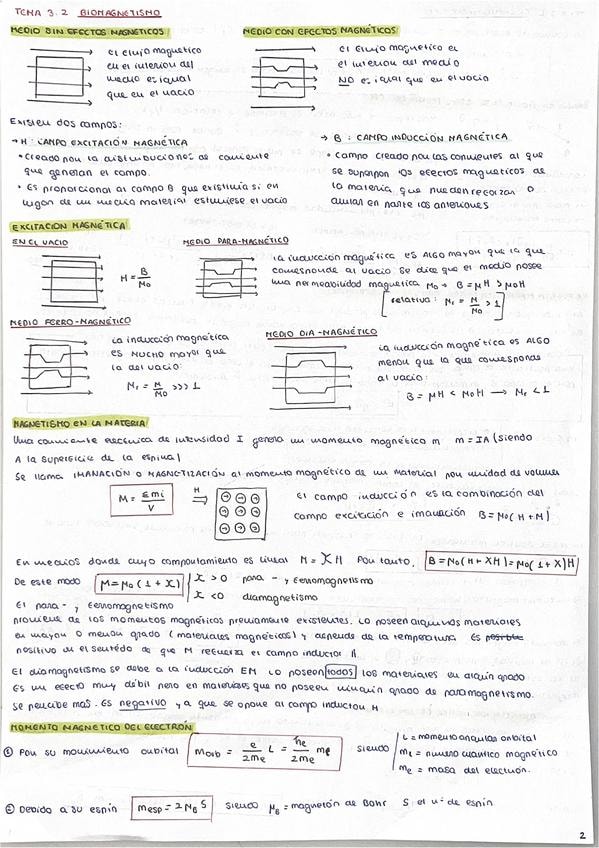 TEMA 3.2 BIOMAGNETISMO
MEDIO SIN EFECTOS MAGNÉTICOS
el flujo magnético
en el interior del
medio es igual
que en el vacío
MEDIO CON EFECTOS MAGNÉTICOS
el flujo magnético en
el interior del medio
NO es igual que en el vacío
Existen dos campos:
→ H: CAMPO EXCITACIÓN MAGNÉTICA
• Creado por la distribuciones de corriente
que generan el campo.
• Es proporcional al campo B que existiría si en
lugar de un medio material estuviese el vacío
→ B: CAMPO INDUCCIÓN MAGNÉTICA
• Campo creado por las corrientes al que
se superpon los efectos magneticos de
la materia, que pueden reforzar o
anular en parte los anteriores
EXCITACION MAGNÉTICA
EN EL VACIO
H = B/μ0
MEDIO PARA-MAGNÉTICO
La inducción magnética es ALGO mayor que la que
corresponde al vacío. Se dice que el medio posee
una permeabilidad magnetica μ0 → B = μH > μ0H
[relativa: μr = μ/μ0 > 1]
MEDIO FERRO-MAGNÉTICO
La inducción magnética
es MUCHO mayor que
la del vacío:
μr = μ/μ0 >>> 1
MEDIO DIA-MAGNÉTICO
La inducción magnética es ALGO
menor que la que corresponde
al vacío:
B = μH < μ0H → μr < 1
MAGNETISMO EN LA MATERIA
Una corriente eléctrica de intensidad I genera un momento magnético m m = IA (siendo
A la superficie de la espira)
Se llama IMANACIÓN O MAGNETIZACIÓN al momento magnético de un material por unidad de volumen
M = Σmi/V
H ⇒
El campo inducción es la combinación del
campo excitación e imanación B = μ0(H + M)
En medios donde cuyo comportamiento es lineal M = χH Por tanto, B = μ0(H + χH) = μ0(1 + χ)H
De este modo μ = μ0(1 + χ)
χ > 0 para - y ferromagnetismo
χ < 0 diamagnetismo
El para - y ferromagnetismo
proviene de los momentos magnéticos previamente existentes. Lo poseen algunos materiales
en mayor o menor grado (materiales magnéticos) y depende de la temperatura. Es
positivo en el sentido de que M refuerza el campo inductor H.
El diamagnetismo se debe a la inducción EM. Lo poseen todos los materiales en algún grado
Es un efecto muy débil pero en materiales que no poseen ningún grado de paramagnetismo.
Se percibe más. Es negativo ya que se opone al campo inductor H
MOMENTO MAGNETICO DEL ELECTRON
① Por su movimiento orbital morb = e/2me L = ħe/2me ml siendo
L = momento angular orbital
ml = numero cuantico magnético
me = masa del electrón.
② Debido a su espín mesp = 2μB S siendo μB = magnetón de Bohr S el nº de espín
2